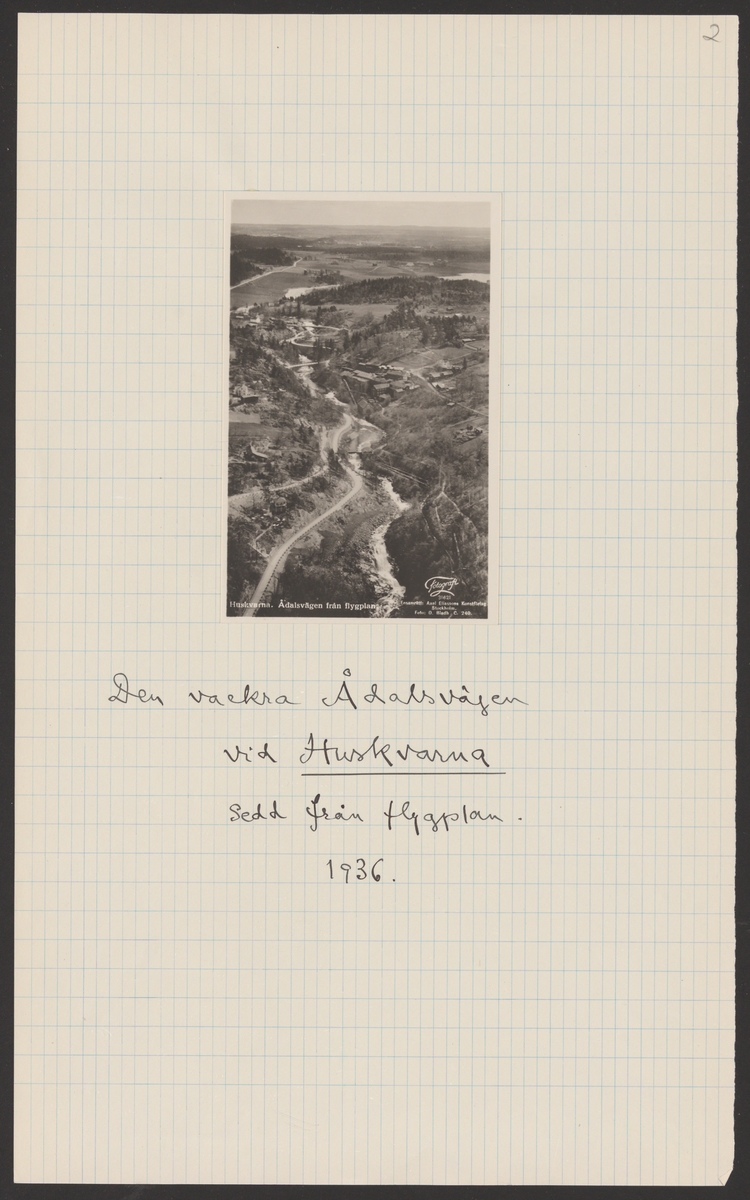 2
Huskvarna. Ådalsvägen från flygplan.
Fotografi
Ensamrätt: Axel Eliassons Konstförlag
Stockholm.
Foto: O. Bladh. C. 246.
Den vackra Ådalsvägen
vid Huskvarna
sedd från flygplan.
1936.